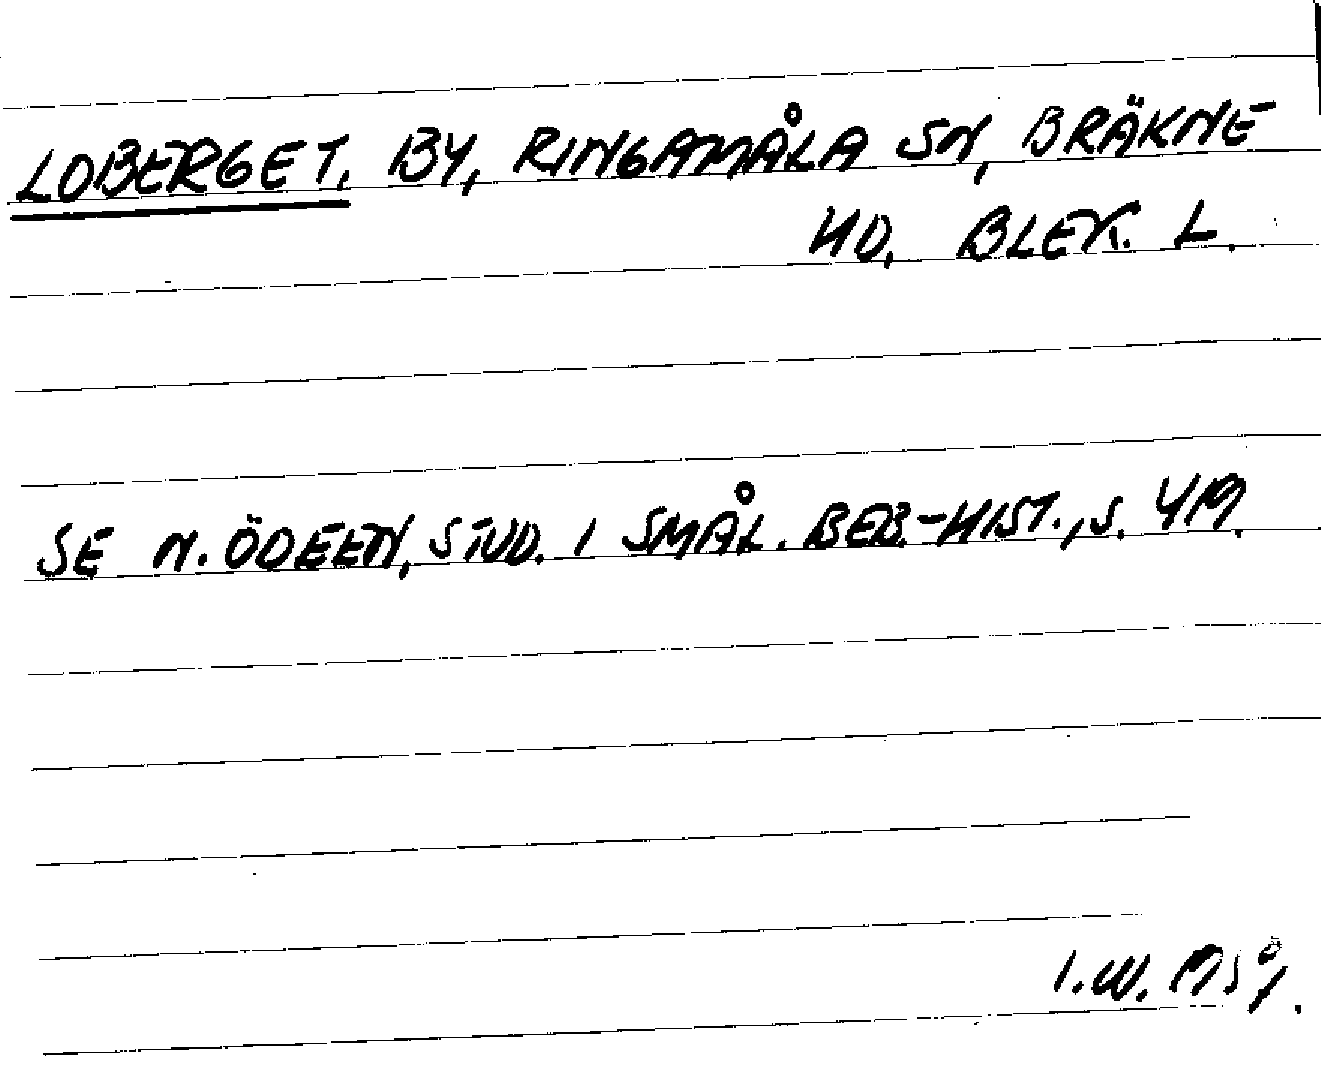 LOBERGET, BY, RINGAMÅLA SN, BRÄKNE
HD, BLEK. L.
SE N. ÖDEEN, STUD. I SMÅL. BEB.-HIST., S. 419.
I.W.